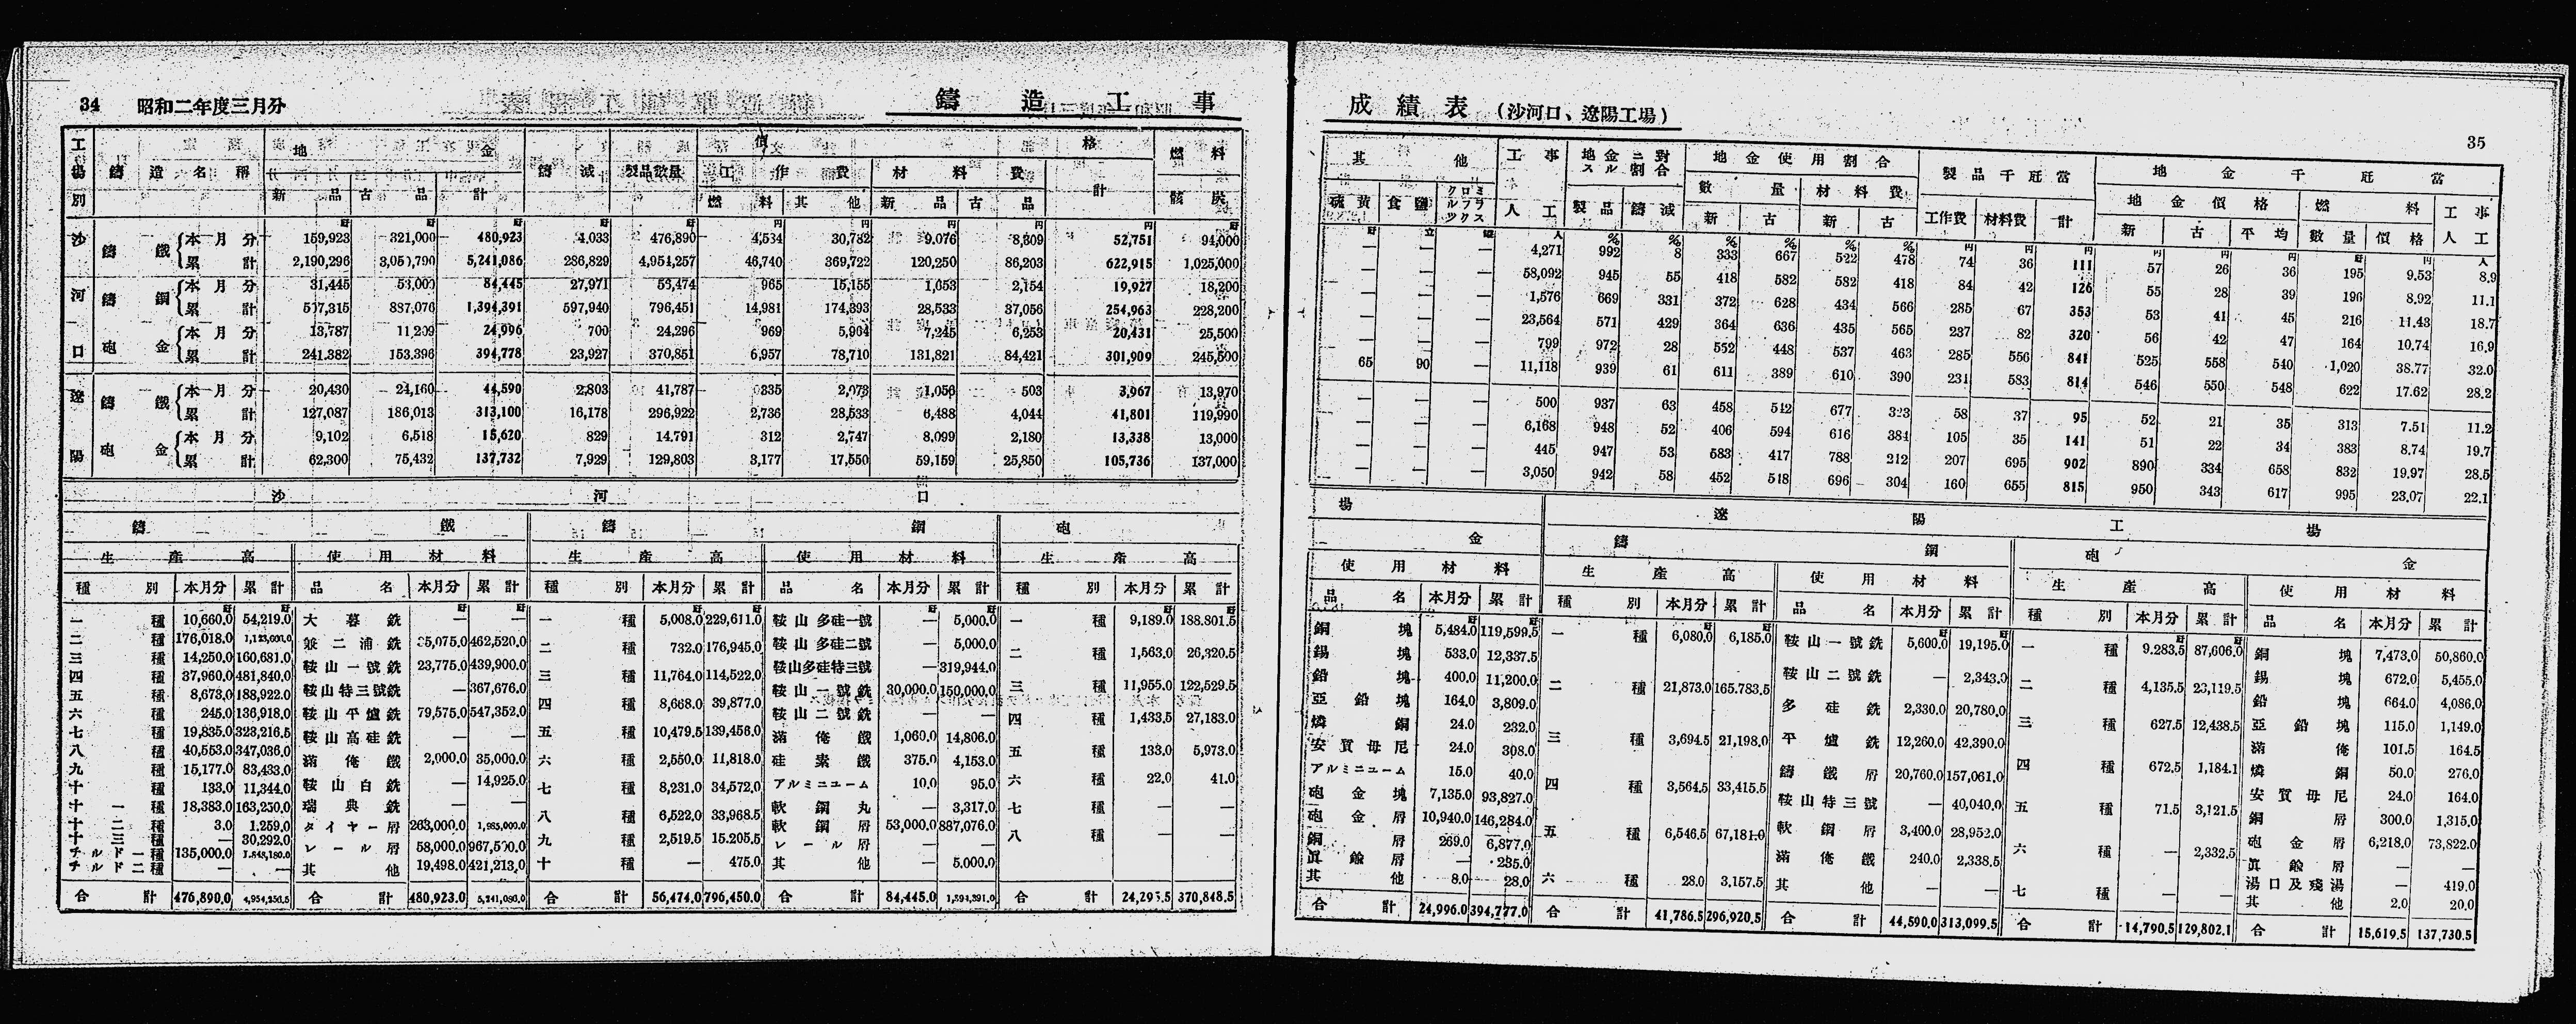 34 昭和二年度三月分 鑄造工事
工場別 鑄造名稱 地金 鑄減 製品數量 價格 燃料
工作費 材料費 計 骸炭
新品 古品 計 燃料 其他 新品 古品
瓩 瓩 瓩 瓩 瓩 円 円 円 円 円 瓩
沙河口 鑄鐵 本月分 159,923 321,000 480,923 4,033 476,890 4,534 30,782 9,076 8,309 52,751 94,000
累計 2,190,296 3,050,790 5,241,086 286,829 4,954,257 46,740 369,722 120,250 86,203 622,915 1,025,000
鑄鋼 本月分 31,445 53,000 84,445 27,971 56,474 965 15,155 1,653 2,154 19,927 18,200
累計 507,315 887,076 1,394,391 597,940 796,451 14,981 174,393 28,533 37,056 254,963 228,200
砲金 本月分 13,787 11,209 24,996 700 24,296 969 5,964 7,245 6,253 20,431 25,500
累計 241,382 153,396 394,778 23,927 370,851 6,957 78,710 131,821 84,421 301,909 245,500
遼陽 鑄鐵 本月分 20,430 24,160 44,590 2,803 41,787 335 2,073 1,056 503 3,967 13,970
累計 127,087 186,013 313,100 16,178 296,922 2,736 28,533 6,488 4,044 41,801 119,990
砲金 本月分 9,102 6,518 15,620 829 14,791 312 2,747 8,099 2,180 13,338 13,000
累計 62,300 75,432 137,732 7,929 129,803 3,177 17,550 59,159 25,850 105,736 137,000
沙河口
鑄鐵 鑄鋼 砲
生產高 使用材料 生產高 使用材料 生產高
種別 本月分 累計 品名 本月分 累計 種別 本月分 累計 品名 本月分 累計 種別 本月分 累計
一種 10,660.0 54,219.0
二種 176,018.0
三種 14,250.0 160,681.0
四種 37,960.0 481,840.0
五種 8,673.0 188,922.0
六種 245.0 136,918.0
七種 19,835.0 323,216.5
八種 40,553.0 347,036.0
九種 15,177.0 83,433.0
十種 133.0 11,344.0
十一種 18,383.0 163,250.0
十二種 3.0 1,259.0
十三種 — 30,292.0
チルド一種 135,000.0
チルド二種 — —
合計 476,890.0
大暮銑 — —
兼二浦銑 35,075.0 462,520.0
鞍山一號銑 23,775.0 439,900.0
鞍山特三號銑 — 367,676.0
鞍山平爐銑 79,575.0 547,352.0
鞍山高硅銑 — —
滿俺鐵 2,000.0 35,000.0
鞍山白銑 — 14,925.0
瑞典銑 — —
タイヤー屑 263,000.0
レール屑 58,000.0 967,500.0
其他 19,498.0 421,213.0
合計 480,923.0 5,241,086.0
一種 5,008.0 229,611.0
二種 732.0 176,945.0
三種 11,764.0 114,522.0
四種 8,668.0 39,877.0
五種 10,479.5 139,456.0
六種 2,550.0 11,818.0
七種 8,231.0 34,572.0
八種 6,522.0 33,968.5
九種 2,519.5 15,205.5
十種 — 475.0
合計 56,474.0 796,450.0
鞍山多硅一號 — 5,000.0
鞍山多硅二號 — 5,000.0
鞍山多硅特三號 — 319,944.0
鞍山一號銑 30,000.0 150,000.0
鞍山二號銑 — —
滿俺鐵 1,060.0 14,806.0
硅素鐵 375.0 4,153.0
アルミニューム 10.0 95.0
軟鋼丸 — 3,317.0
軟鋼屑 53,000.0 887,076.0
レール屑 — —
其他 — 5,000.0
合計 84,445.0
一種 9,189.0 188,801.5
二種 1,563.0 26,320.5
三種 11,955.0 122,529.5
四種 1,433.5 27,183.0
五種 133.0 5,973.0
六種 22.0 41.0
七種 — —
八種 — —
合計 24,295.5 370,848.5
成績表 (沙河口、遼陽工場) 35
其他 工事人工 地金ニ對スル割合 地金使用割合 製品千瓩當 地金千瓩當
數量 材料費 地金價格 燃料 工事人工
硫黃 食鹽 クロミルフラツクス 製品 鑄減 新 古 新 古 工作費 材料費 計 新 古 平均 數量 價格
瓩 立 瓩 人 % % % % % % 円 円 円 円 円 円 瓩 円 人
— — — 4,271 992 8 333 667 522 478 74 36 111 57 26 36 195 9.53 8.9
— — — 58,092 945 55 418 582 582 418 84 42 126 55 28 39 196 8.92 11.1
— — — 1,576 669 331 372 628 434 566 285 67 353 53 41 45 216 11.43 18.7
— — — 23,564 571 429 364 636 435 565 237 82 320 56 42 47 164 10.74 16.9
— — — 799 972 28 552 448 537 463 285 556 841 525 558 540 1,020 38.77 32.0
65 90 — 11,118 939 61 611 389 610 390 231 583 814 546 550 548 622 17.62 28.2
— — — 500 937 63 458 542 677 323 58 37 95 52 21 35 313 7.51 11.2
— — — 6,168 948 52 406 594 616 384 105 35 141 51 22 34 383 8.74 19.7
— — — 445 947 53 583 417 788 212 207 695 902 890 334 658 832 19.97 28.5
— — — 3,050 942 58 452 518 696 304 160 655 815 950 343 617 995 23.07 22.1
場 遼陽工場
金 鑄鋼 砲金
使用材料 生產高 使用材料 生產高 使用材料
品名 本月分 累計 種別 本月分 累計 品名 本月分 累計 種別 本月分 累計 品名 本月分 累計
銅塊 5,484.0 119,599.5
錫塊 533.0 12,337.5
鉛塊 400.0 11,200.0
亞鉛塊 164.0 3,809.0
燐銅 24.0 232.0
安質母尼 24.0 308.0
アルミニューム 15.0 40.0
砲金塊 7,135.0 93,827.0
砲金屑 10,940.0 146,284.0
銅屑 269.0 6,877.0
眞鍮屑 — 235.0
其他 8.0 28.0
合計 24,996.0 394,777.0
一種 6,080.0 6,185.0
二種 21,873.0 165,783.5
三種 3,694.5 21,198.0
四種 3,564.5 33,415.5
五種 6,546.5 67,181.0
六種 28.0 3,157.5
合計 41,786.5 296,920.5
鞍山一號銑 5,600.0 19,195.0
鞍山二號銑 — 2,343.0
多硅銑 2,330.0 20,780.0
平爐銑 12,260.0 42,390.0
鑄鐵屑 20,760.0 157,061.0
鞍山特三號 — 40,040.0
軟鋼屑 3,400.0 28,952.0
滿俺鐵 240.0 2,338.5
其他 — —
合計 44,590.0 313,099.5
一種 9,283.5 87,606.0
二種 4,135.5 23,119.5
三種 627.5 12,438.5
四種 672.5 1,184.1
五種 71.5 3,121.5
六種 — 2,332.5
七種 — —
合計 14,790.5 129,802.1
銅塊 7,473.0 50,860.0
錫塊 672.0 5,455.0
鉛塊 664.0 4,086.0
亞鉛塊 115.0 1,149.0
滿俺 101.5 164.5
燐銅 50.0 276.0
安質母尼 24.0 164.0
銅屑 300.0 1,315.0
砲金屑 6,218.0 73,822.0
眞鍮屑 — —
湯口及殘湯 — 419.0
其他 2.0 20.0
合計 15,619.5 137,730.5